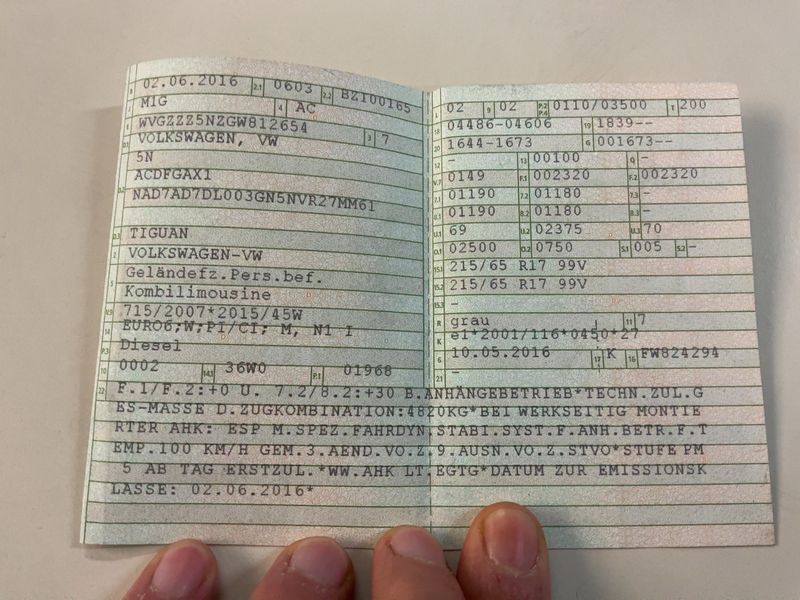 B 02.06.2016 2.1 0603 2.2 BZI00165
J M1G 4 AC
E WVGZZZ5NZGW812654 3 7
D.1 VOLKSWAGEN, VW
5N
D.2 ACDFGAX1
NAD7AD7DL003GN5NVR27MM61
D.3 TIGUAN
2 VOLKSWAGEN-VW
5 Geländefz.Pers.bef.
Kombilimousine
V.9 715/2007*2015/45W
14 EURO6;W;PI/CI; M, N1 I
P.3 Diesel
10 0002 14.1 36W0 P.1 01968
L 02 9 02 P.2 P.4 0110/03500 T 200
18 04486-04606 19 1839--
20 1644-1673 G 001673--
12 - 13 00100 Q -
V.7 0149 F.1 002320 F.2 002320
7.1 01190 7.2 01180 7.3 -
8.1 01190 8.2 01180 8.3 -
U.1 69 U.2 02375 U.3 70
O.1 02500 O.2 0750 S.1 005 S.2 -
15.1 215/65 R17 99V
15.2 215/65 R17 99V
15.3 -
R grau 11 7
K e1*2001/116*0450*27
6 10.05.2016 17 K 16 FW824294
21 -
22 F.1/F.2:+0 U. 7.2/8.2:+30 B.ANHÄNGEBETRIEB*TECHN.ZUL.G
ES-MASSE D.ZUGKOMBINATION:4820KG*BEI WERKSEITIG MONTIE
RTER AHK: ESP M.SPEZ.FAHRDYN.STABI.SYST.F.ANH.BETR.F.T
EMP.100 KM/H GEM.3.AEND.VO.Z.9.AUSN.VO.Z.STVO*STUFE PM
5 AB TAG ERSTZUL.*WW.AHK LT.EGTG*DATUM ZUR EMISSIONSK
LASSE: 02.06.2016*